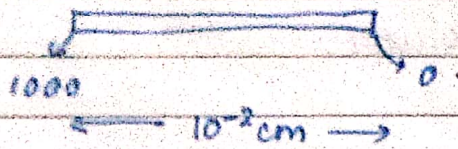 1000
0
10⁻² cm